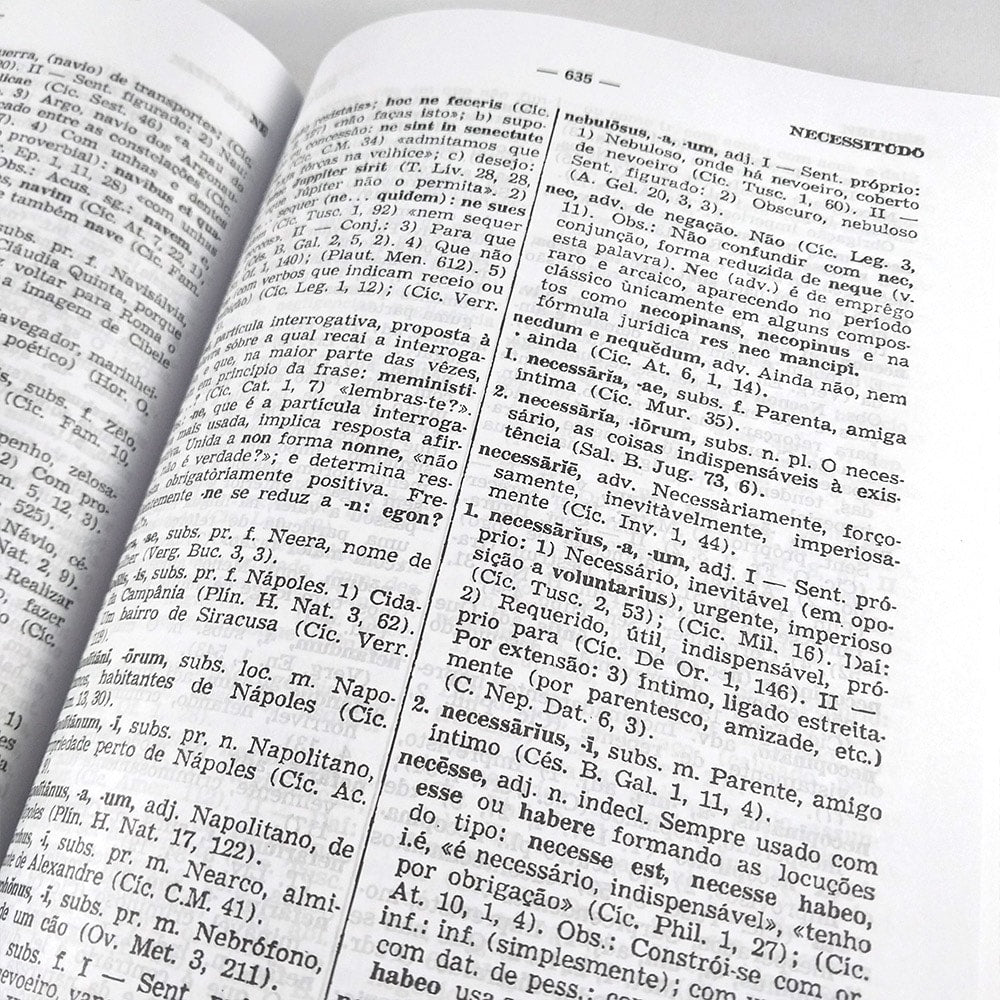 uerra, (navio) de transportes;
II — Sent. figurado: 2)
dicae (Cíc. Sest. 46) «a nau do
3) Argo, navio dos Argonau-
cado entre as constelações (Cíc.
4) Com unhas e dentes
proverbial): navibus et qua-
Ep. 1, 11, 28) «com unhas
Obs.: Acus. sg.: navem,
navim (Cíc. At. 7, 22, 1)
também nave (Cíc. Fam.
subs. pr. f. Navisálvia,
Cláudia Quinta, porque
voltar para Roma o
a imagem de Cibele
navegador, marinhei-
poético) (Hor. O.
subs. f. Zêlo,
(Cíc. Fam. 10,
penho, zelosa-
2) Com pro-
m. 5, 12, 3).
525).
Návio, cé-
Nat. 2, 9).
Realizar
fazer
(Cíc.
1)
NE
— 635 —
NECESSITŪDŌ
resistais»; hoc ne feceris (Cíc.
«não faças isto»; b) supo-
concessão: ne sint in senectute
(Cíc. C.M. 34) «admitamos que
fôrças na velhice»; c) desejo:
ne Juppiter sirit (T. Lív. 28, 28,
Júpiter não o permita». 2)
sequer (ne... quidem): ne sues
(Cíc. Tusc. 1, 92) «nem sequer
II — Conj.: 3) Para que
B. Gal. 2, 5, 2). 4) Que não
1, 140); (Plaut. Men. 612). 5)
com verbos que indicam receio ou
(Cíc. Leg. 1, 12); (Cíc. Verr.
partícula interrogativa, proposta à
sôbre a qual recai a interroga-
e que, na maior parte das vêzes,
em princípio da frase: meministi-
(Cíc. Cat. 1, 7) «lembras-te?».
-ne, que é a partícula interroga-
mais usada, implica resposta afir-
Unida a non forma nonne, «não
é verdade?»; e determina res-
obrigatòriamente positiva. Fre-
-ne se reduz a -n: egon?
-ae, subs. pr. f. Neera, nome de
(Verg. Buc. 3, 3).
-is, subs. pr. f. Nápoles. 1) Cida-
Campânia (Plín. H. Nat. 3, 62).
Um bairro de Siracusa (Cíc. Verr.
-ōrum, subs. loc. m. Napo-
habitantes de Nápoles (Cíc.
13, 30).
-ī, subs. pr. n. Napolitano,
perto de Nápoles (Cíc. Ac.
-a, -um, adj. Napolitano, de
(Plín. H. Nat. 17, 122).
-ī, subs. pr. m. Nearco, almi-
de Alexandre (Cíc. C.M. 41).
-ī, subs. pr. m. Nebrófono,
de um cão (Ov. Met. 3, 211).
subs. f. I — Sent.
nevoeiro,
nebulōsus, -a, -um, adj. I — Sent. próprio:
1) Nebuloso, onde há nevoeiro, coberto
de nevoeiro (Cíc. Tusc. 1, 60). II —
Sent. figurado: 2) Obscuro, nebuloso
(A. Gel. 20, 3, 3).
nec, adv. de negação. Não (Cíc. Leg. 3,
11). Obs.: Não confundir com nec,
conjunção, forma reduzida de neque (v.
esta palavra). Nec (adv.) é de emprêgo
raro e arcaico, aparecendo no período
clássico ùnicamente em alguns compos-
tos como necopinans, necopinus e na
fórmula jurídica res nec mancipi.
necdum e nequĕdum, adv. Ainda não, nem
ainda (Cíc. At. 6, 1, 14).
1. necessāria, -ae, subs. f. Parenta, amiga
íntima (Cíc. Mur. 35).
2. necessāria, -iōrum, subs. n. pl. O neces-
sário, as coisas indispensáveis à exis-
tência (Sal. B. Jug. 73, 6).
necessāriē, adv. Necessàriamente, força-
samente, inevitàvelmente, imperiosa-
mente (Cíc. Inv. 1, 44).
1. necessārius, -a, -um, adj. I — Sent. pró-
prio: 1) Necessário, inevitável (em opo-
sição a voluntarius), urgente, imperioso
(Cíc. Tusc. 2, 53); (Cíc. Mil. 16). Daí:
2) Requerido, útil, indispensável, pró-
prio para (Cíc. De Or. 1, 146). II —
Por extensão: 3) Íntimo, ligado estreita-
mente (por parentesco, amizade, etc.)
(C. Nep. Dat. 6, 3).
2. necessārius, -ī, subs. m. Parente, amigo
íntimo (Cés. B. Gal. 1, 11, 4).
necĕsse, adj. n. indecl. Sempre usado com
esse ou habere formando as locuções
do tipo: necesse est, necesse habeo,
i.é, «é necessário, indispensável», «tenho
por obrigação» (Cíc. Phil. 1, 27); (Cíc.
At. 10, 1, 4). Obs.: Constrói-se com or.
inf.: inf. (simplesmente); com
com dat. de pess.;
habeo usa